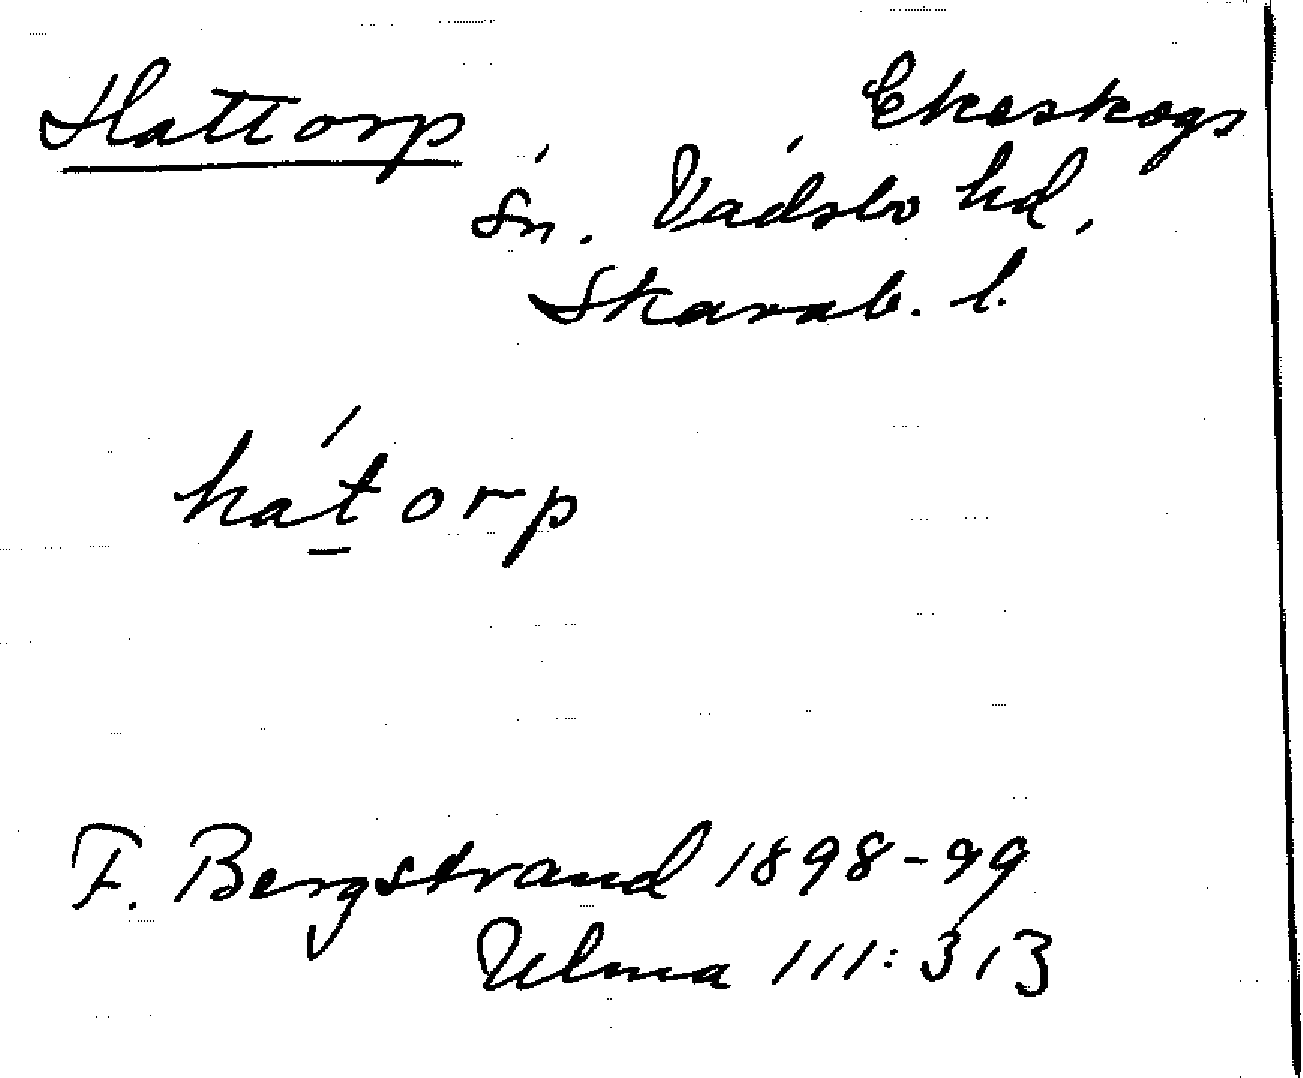 Hattorp Ekeskogs
sn. Vadsbo hd.
Skarab. l.
há̱torp
F. Bergstrand 1898-99
Ulma 111:313